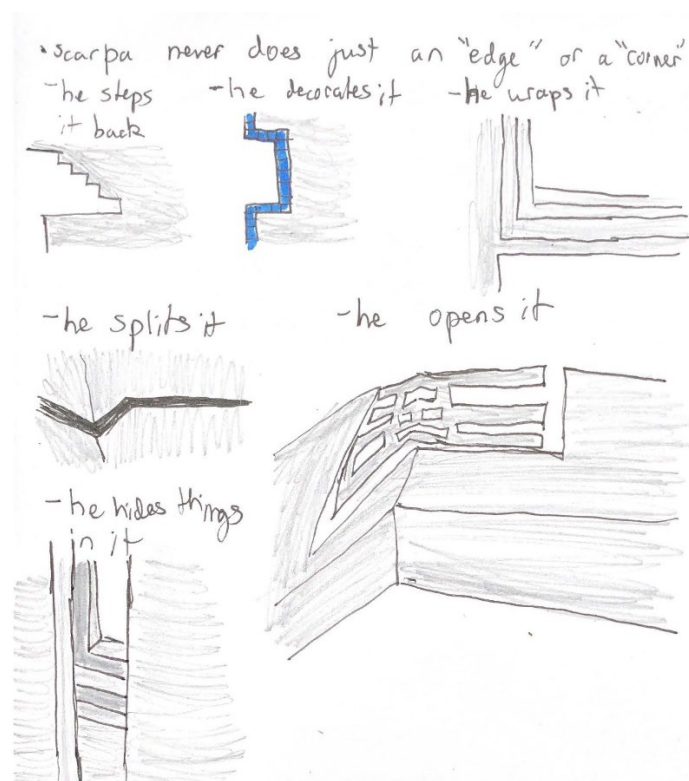 • scarpa never does just an "edge" or a "corner"
- he steps it back
- he decorates it
- he wraps it
- he splits it
- he opens it
- he hides things in it